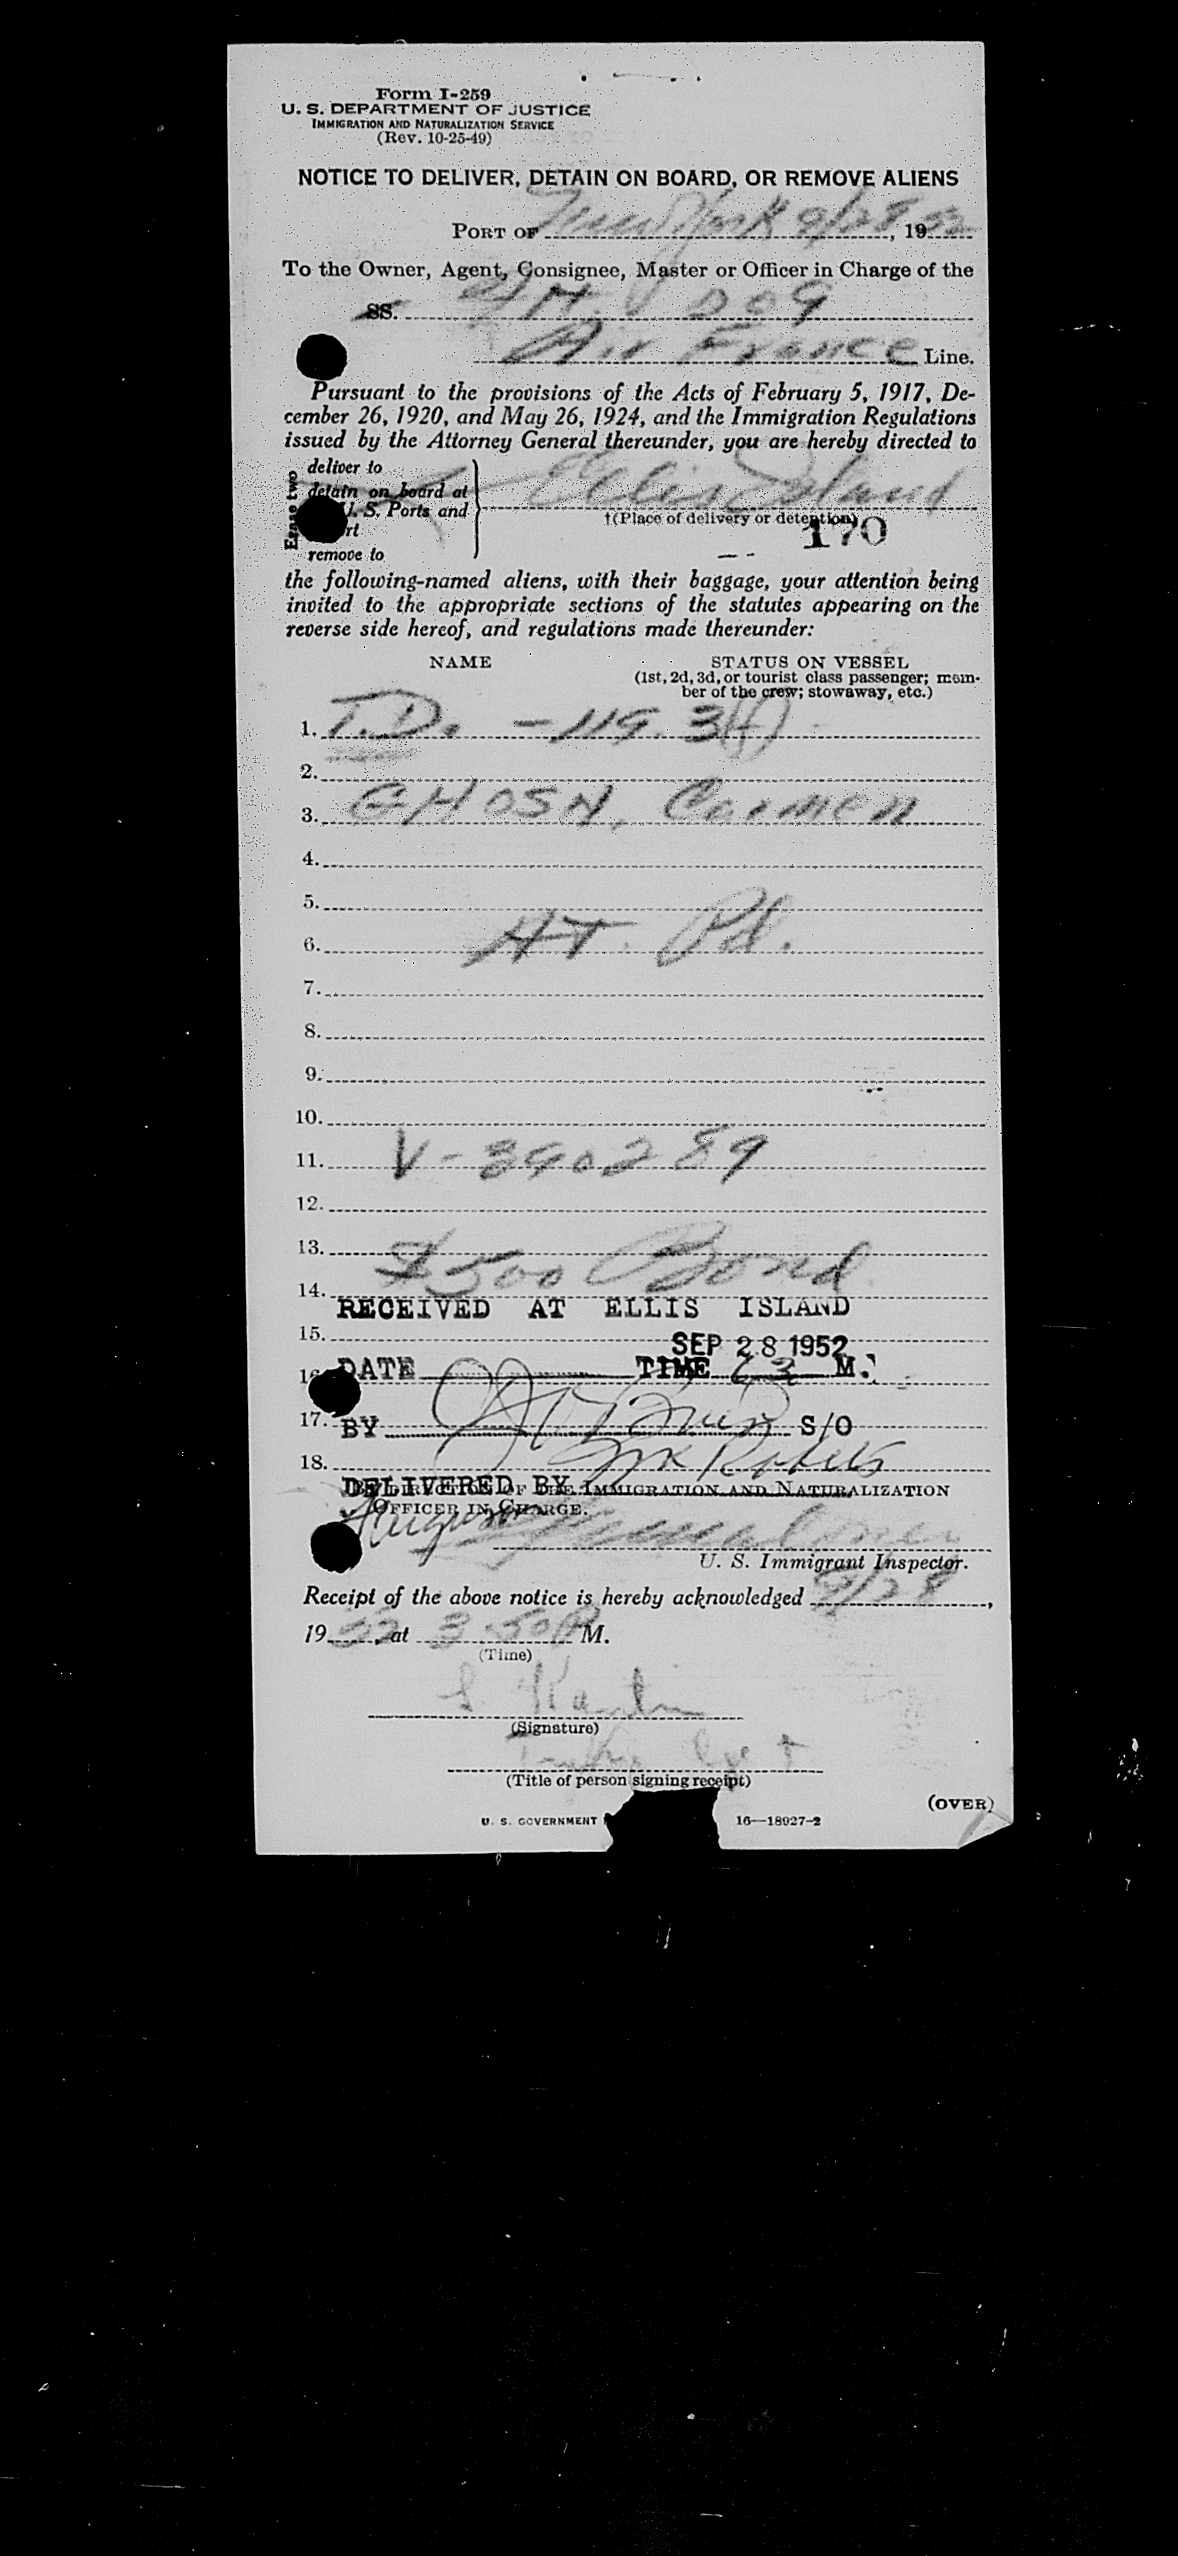 Form I-259
U. S. DEPARTMENT OF JUSTICE
IMMIGRATION AND NATURALIZATION SERVICE
(Rev. 10-25-49)
NOTICE TO DELIVER, DETAIN ON BOARD, OR REMOVE ALIENS
PORT OF New York 9/28, 1952
To the Owner, Agent, Consignee, Master or Officer in Charge of the
SS. 009
Air France Line.
Pursuant to the provisions of the Acts of February 5, 1917, De-
cember 26, 1920, and May 26, 1924, and the Immigration Regulations
issued by the Attorney General thereunder, you are hereby directed to
Erase two
deliver to
detain on board at
U. S. Ports and
remove to
Ellis Island
†(Place of delivery or detention)
170
the following-named aliens, with their baggage, your attention being
invited to the appropriate sections of the statutes appearing on the
reverse side hereof, and regulations made thereunder:
NAME STATUS ON VESSEL
(1st, 2d, 3d, or tourist class passenger; mem-
ber of the crew; stowaway, etc.)
1. T.D.
2.
3. GHOSN, Carmen
4.
5.
6. HT. Pd.
7.
8.
9.
10.
11. V-390289
12.
13. $500 Bond
14.
RECEIVED AT ELLIS ISLAND
15. SEP 28 1952
16 DATE TIME M.
17. BY S/O
18.
DELIVERED BY
OF THE IMMIGRATION AND NATURALIZATION
OFFICER IN CHARGE.
U. S. Immigrant Inspector.
Receipt of the above notice is hereby acknowledged 9/28,
1952, at 3:50 P M.
(Time)
(Signature)
(Title of person signing receipt)
(OVER)
U. S. GOVERNMENT 16—18927-2